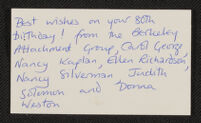 Best wishes on your 80th
birthday! from the Berkeley
Attachment Group, Carol George,
Nancy Kaplan, Ellen Richardson,
Nancy Silverman Judith
Solomon and Donna
Weston